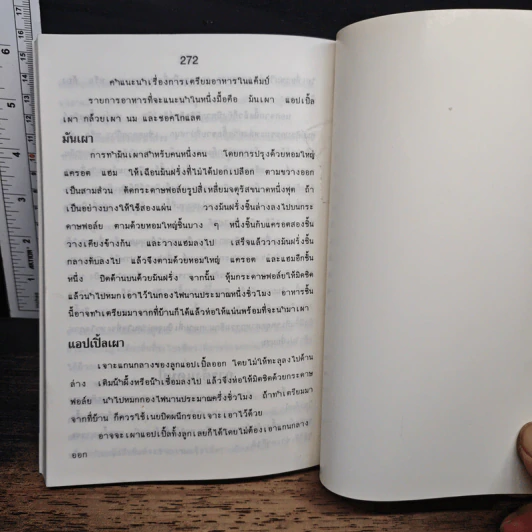 272
คำแนะนำเรื่องการเตรียมอาหารในแค้มป์
รายการอาหารที่จะแนะนำในหนึ่งมื้อคือ มันเผา แอปเปิ้ล
เผา กล้วยเผา นม และชอคโกแลต
มันเผา
การทำมันเผาสำหรับคนหนึ่งคน โดยการปรุงด้วยหอมใหญ่
แครอต แฮม ให้เฉือนมันฝรั่งที่ไม่ได้ปอกเปลือก ตามขวางออก
เป็นสามส่วน ตัดกระดาษฟอล์ยรูปสี่เหลี่ยมจตุรัสขนาดหนึ่งฟุต ถ้า
เป็นอย่างบางให้ใช้สองแผ่น วางมันฝรั่งชิ้นล่างลงไปบนกระ
ดาษฟอล์ย ตามด้วยหอมใหญ่ชิ้นบาง ๆ หนึ่งชิ้นกับแครอตสองชิ้น
วางเคียงข้างกัน และวางแฮมลงไป เสร็จแล้ววางมันฝรั่งชิ้น
กลางทับลงไป แล้วจึงตามด้วยหอมใหญ่ แครอต และแฮมอีกชิ้น
หนึ่ง ปิดด้านบนด้วยมันฝรั่ง จากนั้น หุ้มกระดาษฟอล์ยให้มิดชิด
แล้วนำไปหมกเอาไว้ในกองไฟนานประมาณหนึ่งชั่วโมง อาหารชิ้น
นี้อาจทำเตรียมมาจากที่บ้านก็ได้แล้วห่อให้แน่นพร้อมที่จะนำมาเผา
แอปเปิ้ลเผา
เจาะแกนกลางของลูกแอปเปิ้ลออก โดยไม่ให้ทะลุลงไปด้าน
ล่าง เติมน้ำผึ้งหรือน้ำเชื่อมลงไป แล้วจึงห่อให้มิดชิดด้วยกระดาษ
ฟอล์ย นำไปหมกกองไฟนานประมาณครึ่งชั่วโมง ถ้าทำเตรียมมา
จากที่บ้าน ก็ควรใช้เนยปิดผนึกรอบเจาะเอาไว้ด้วย
อาจจะเผาแอปเปิ้ลทั้งลูกเลยก็ได้โดยไม่ต้องเอาแกนกลาง
ออก